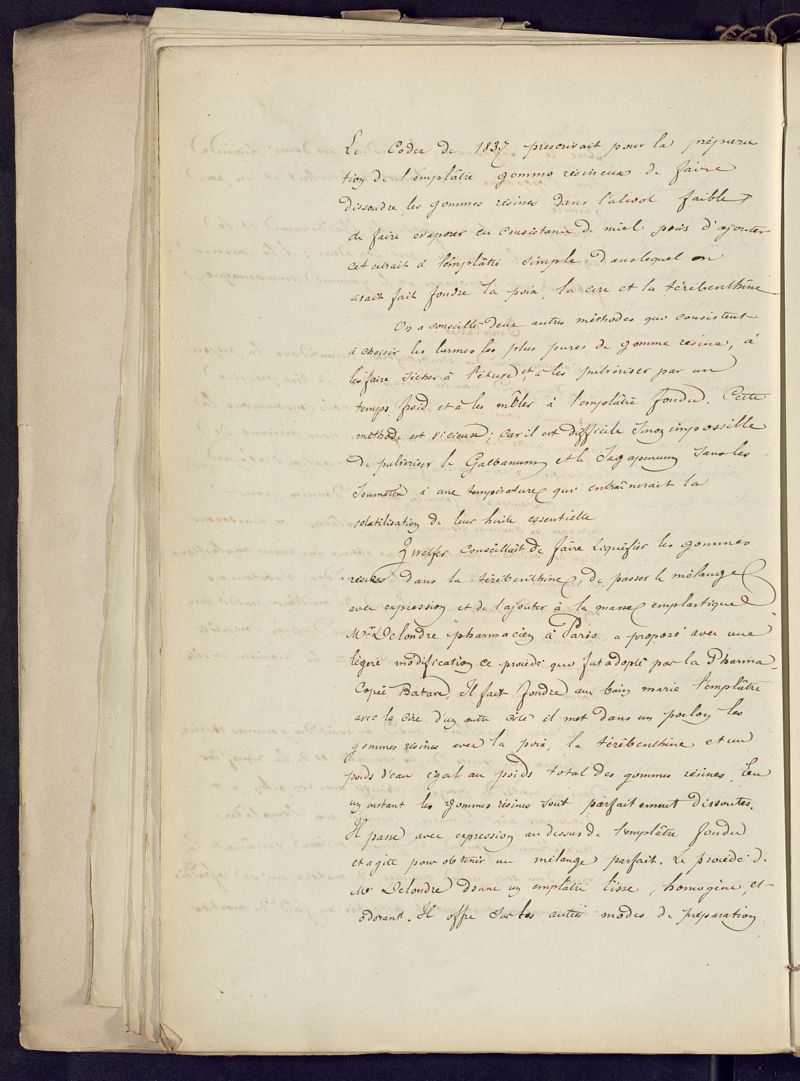 Le Codex de 1837 prescrivait pour la prépara
tion de l'emplâtre gommo résineux de faire
dissoudre les gommes résines dans l'alcool faible,
de faire évaporer en consistance de miel puis d'ajouter
cet extrait à l'emplâtre simple dans lequel on
avait fait fondre la poix, la cire et la térébenthine
On a conseillé deux autres méthodes qui consistent
à choisir les larmes les plus pures de gomme résine, à
les faire sécher à l'étuve, et à les pulvériser par un
temps froid et à les mêler à l'emplâtre fondu. Cette
méthode est vicieuse; car il est difficile sinon impossible
de pulvériser le Galbanum et le Sagapenum sans les
soumettre à une température qui entraînerait la
volatilisation de leur huile essentielle
Zwelfer conseillait de faire liquifier les gommes
résines dans la térébenthine, de passer le mélange
avec expression et de l'ajouter à la masse emplastique
Mr Delondre pharmacien à Paris a proposé avec une
légère modification ce procédé qui fut adopté par la Pharma-
Copée Batave Il fait fondre au bain marie l'emplâtre
avec la cire d'un autre côté il met dans un poêlon les
gommes résines avec la poix, la térébenthine et un
poids d'eau égal au poids total des gommes résines. En
un instant les gommes résines sont parfaitement dissoutes.
Il passe avec expression au dessus de l'emplâtre fondu
et agite pour obtenir un mélange parfait. Le procédé de
Mr Delondre donne un emplâtre lisse, homogène, et
odorant. Il offre sur les autres modes de préparation